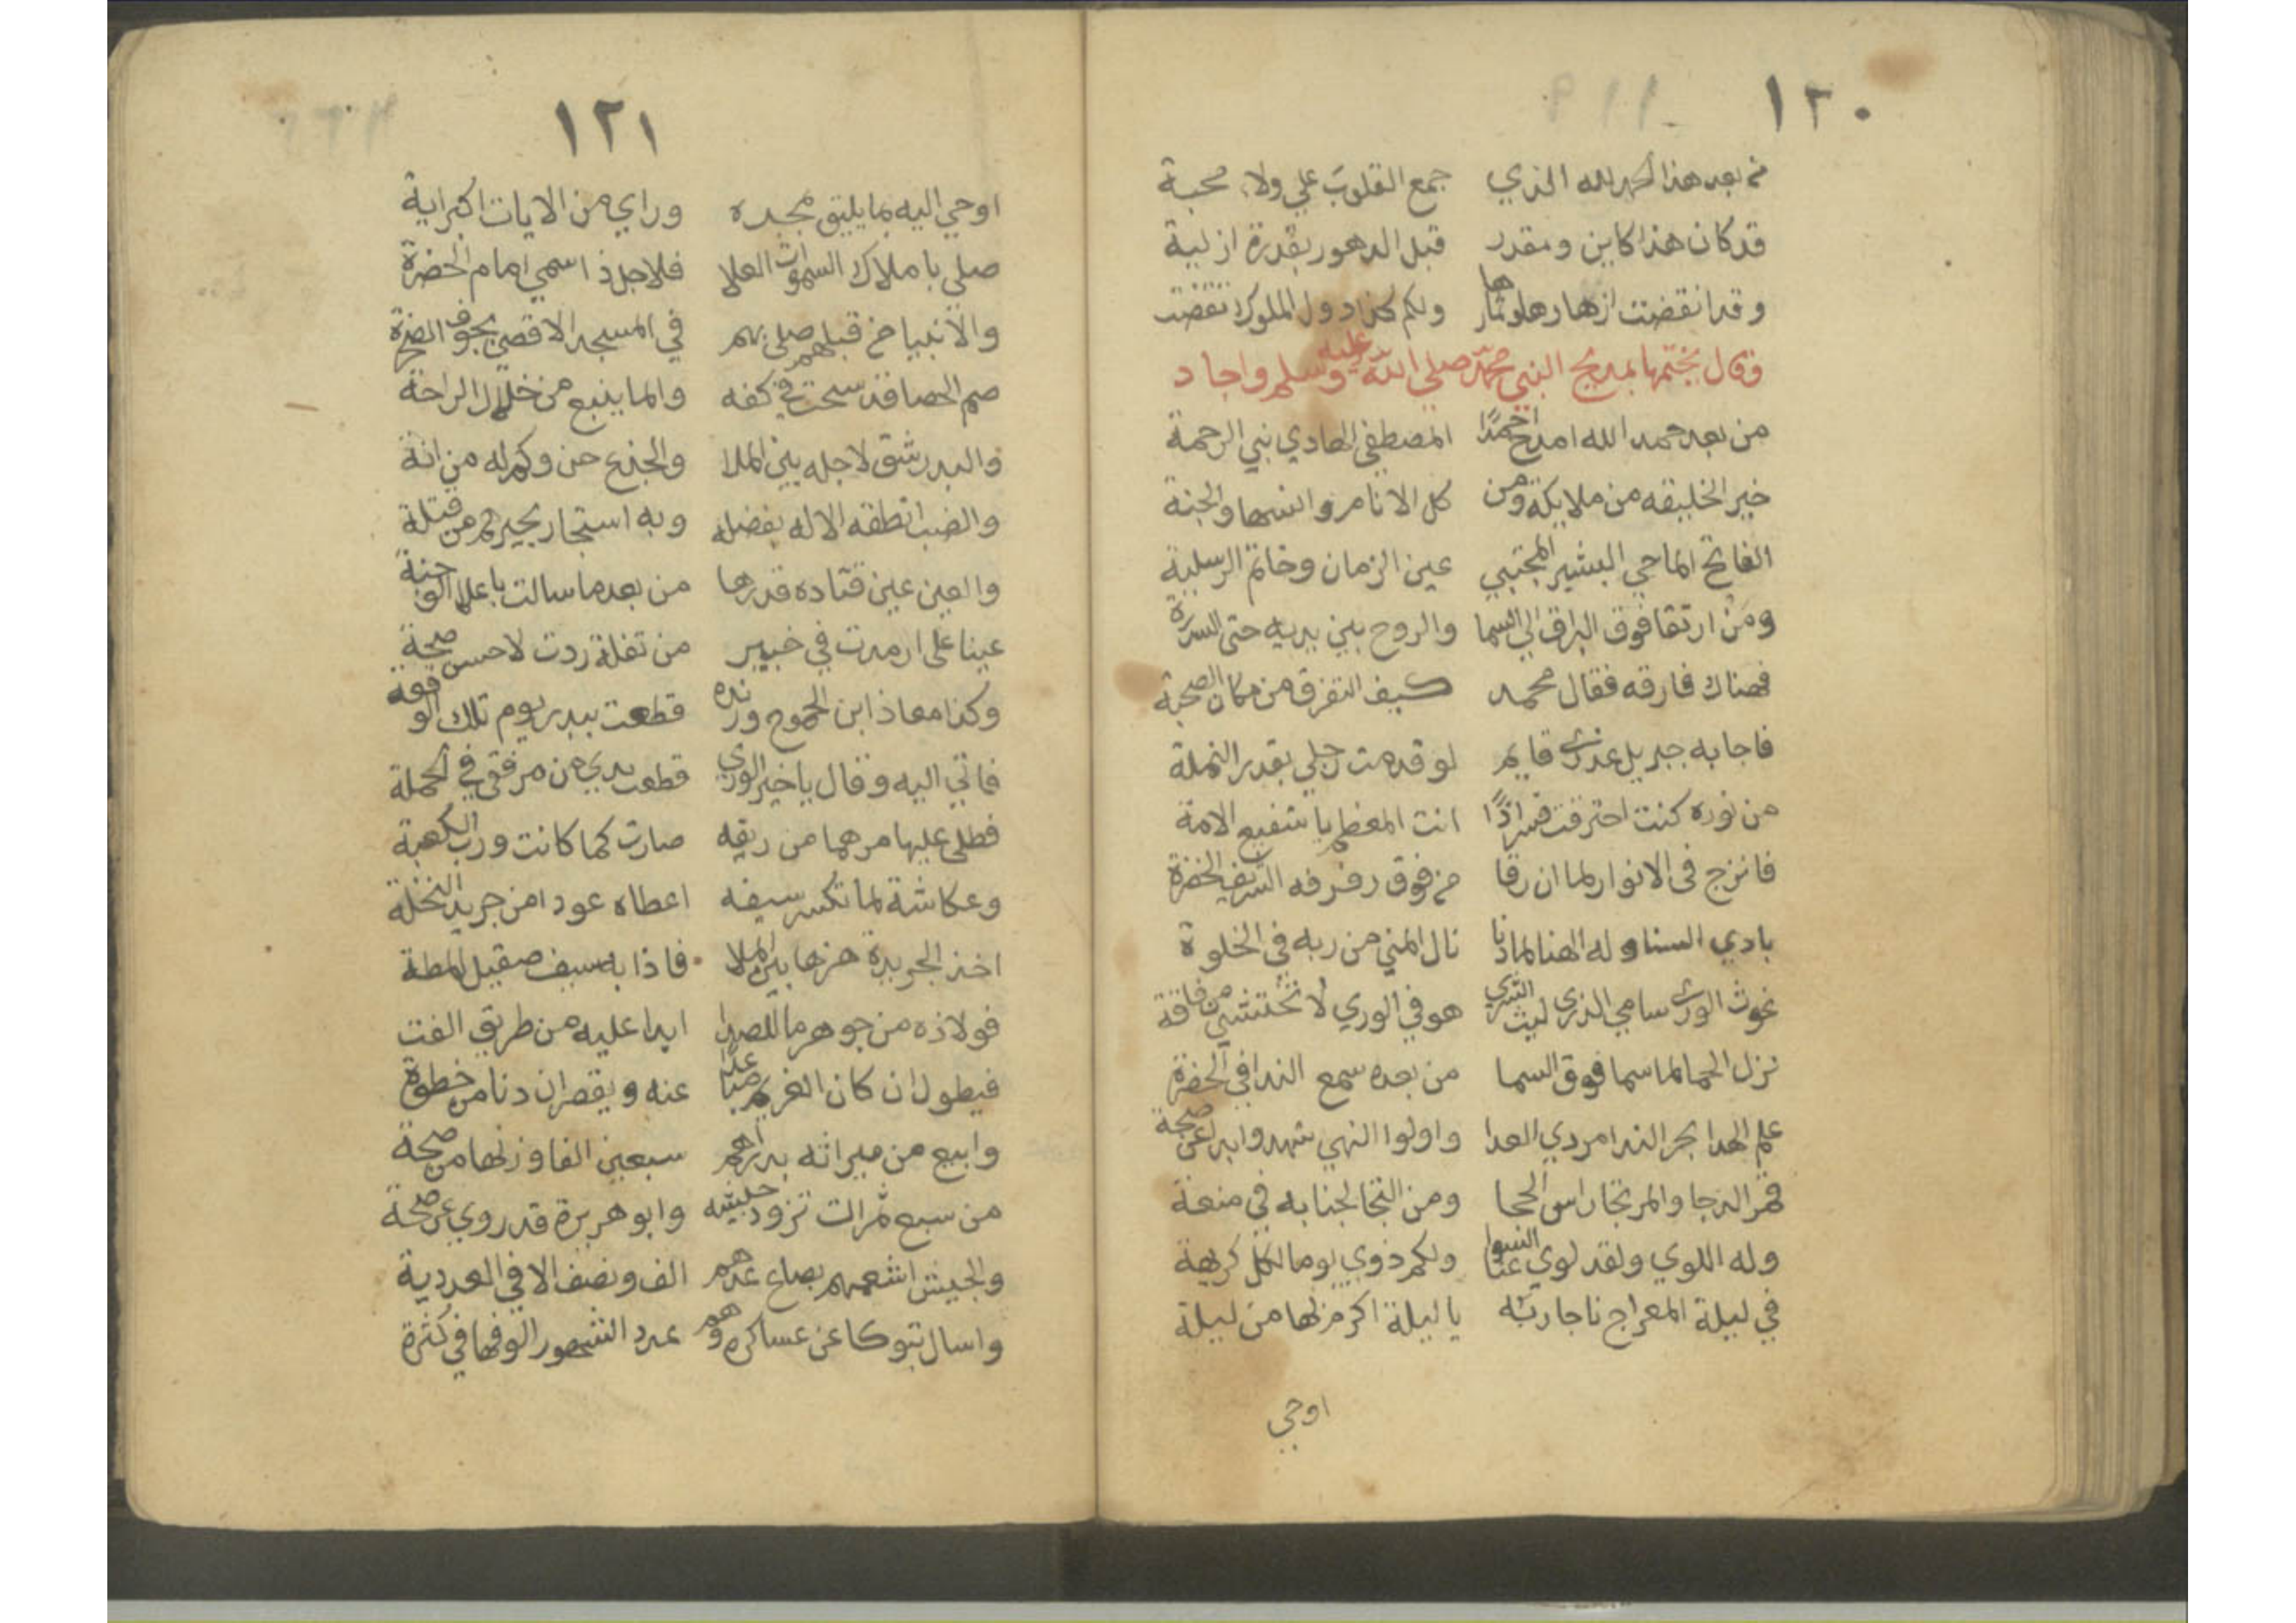 ١٢٠
من بعد هذا الحمد لله الذي جمع القلوب علي ولاء محبة
قد كان هذا كاين ومقدر قبل الدهور بقدرة ازلية
وقد انقضت ازهارها وثمارها ولكم كذا دول الملوك تنقضت
وقال يختمها بمديح النبي محمد صلي الله عليه وسلم واجاد
من بعد حمد الله امدح احمدًا المصطفى الهادي نبي الرحمة
خير الخليقه من ملايكة ومن كل الانام والسما والجنة
الفاتح الماحي البشير المجتبي عين الزمان وخاتم الرسلية
ومن ارتقا فوق البراق الي السما والروح بين يديه حتى السدرة
فهناك فارقه فقال محمد كيف التفرق من مكان الصحبة
فاجابه جبريل عذري قايم لو قدمت رجلي بقدر النملة
من نوره كنت احترقت فسر اذًا انت المعظم يا شفيع الامة
فانزج في الانوار لما ان رقا من فوق رفرفه الشريف الخضرة
بادي السنا وله الهنا لما دنا نال المني من ربه في الخلوة
غوث الوري سامي الذري ليث الشري هو في الوري لا تختشي من فاقة
نزل الحما لما سما فوق السما من بعده سمع الندا في الحضرة
علم الهدا بحر الندا مردي العدا واولوا النهي شهدوا بدا عن صحة
قمر الدجا والمرتجا راس الحجا ومن التجا لجنابه في منعة
وله اللوي ولقد لوي عنا السوا ولكم ذوي يوما لكل كريهة
في ليلة المعراج ناجا ربه يا ليلة اكرم بها من ليلة
اوحي
١٢١
اوحي اليه بما يليق بمجده وراي من الايات اكبر اية
صلي باملاك السموات العلا فلاجل ذا سمي امام الحضرة
والانبيا من قبلهم صلي بهم في المسجد الاقصي بجوف الصخرة
صم الحصا قد سبحت في كفه والما ينبع من خلال الراحة
والبدر شق لاجله بين الملا والجذع حن وكم له من انة
والضب انطقه الاله بفضله وبه استجار بجيرهم من قتلة
والعين عين قتاده قد ردها من بعد ما سالت باعلا الوجنة
عينا علي ارمدت في خيبر من تفلة ردت لاحسن صحة
وكذا معاذ ابن الجموح وزنده قطعت ببدر يوم تلك الوقعة
فاتي اليه وقال يا خير الوري قطعت يدي من مرفقي في الحملة
فطلي عليها مرهما من ريقه صارت كما كانت ورب الكعبة
وعكاشة لما تكسر سيفه اعطاه عودا من جريد النخلة
اخذ الجريدة هزها بين الملا فاذا به سيف صقيل المطة
فولاذه من جوهر ما للصدا ابدا عليه من طريق الفت
فيطول ان كان الغريم مجنبا عنه ويقصر ان دنا من خطوة
وابيع من ميراثه بدراهم سبعين الفا وزنها من صحة
من سبع ثمرات تزود جيشه وابو هريرة قد روي عن صحة
والجيش اشعهم بصاع عدهم الف ونصف الالف في العددية
واسال تبوكا عن عساكره وهم عدد الشهور الوفها في كثرة